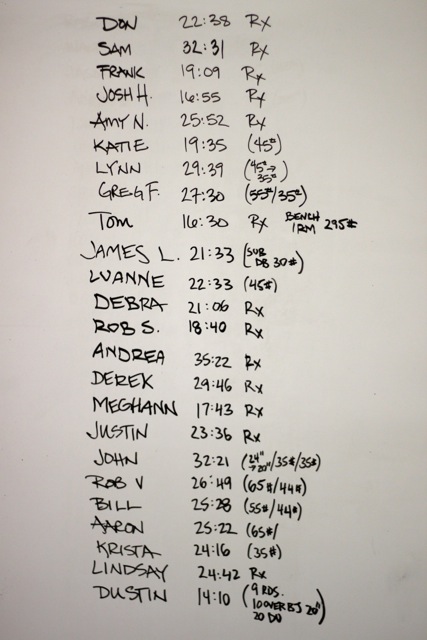 DON 22:38 Rx
SAM 32:31 Rx
FRANK 19:09 Rx
JOSH H. 16:55 Rx
AMY N. 25:52 Rx
KATIE 19:35 (45#)
LYNN 29:39 (45#→
35#)
GREG F. 27:30 (55#/35#)
TOM 16:30 Rx BENCH
1RM 295#
JAMES L. 21:33 (SUB
DB 30#)
LUANNE 22:33 (45#)
DEBRA 21:06 Rx
ROB S. 18:40 Rx
ANDREA 35:22 Rx
DEREK 29:46 Rx
MEGHANN 17:43 Rx
JUSTIN 23:36 Rx
JOHN 32:21 (24"
→20"/35#/35#)
ROB V 26:49 (65#/44#)
BILL 25:28 (55#/44#)
AARON 25:22 (65#/
KRISTA 24:16 (35#)
LINDSAY 24:42 Rx
DUSTIN 14:10 (9 RDS.
10 OVER BJ 20"
20 DU)